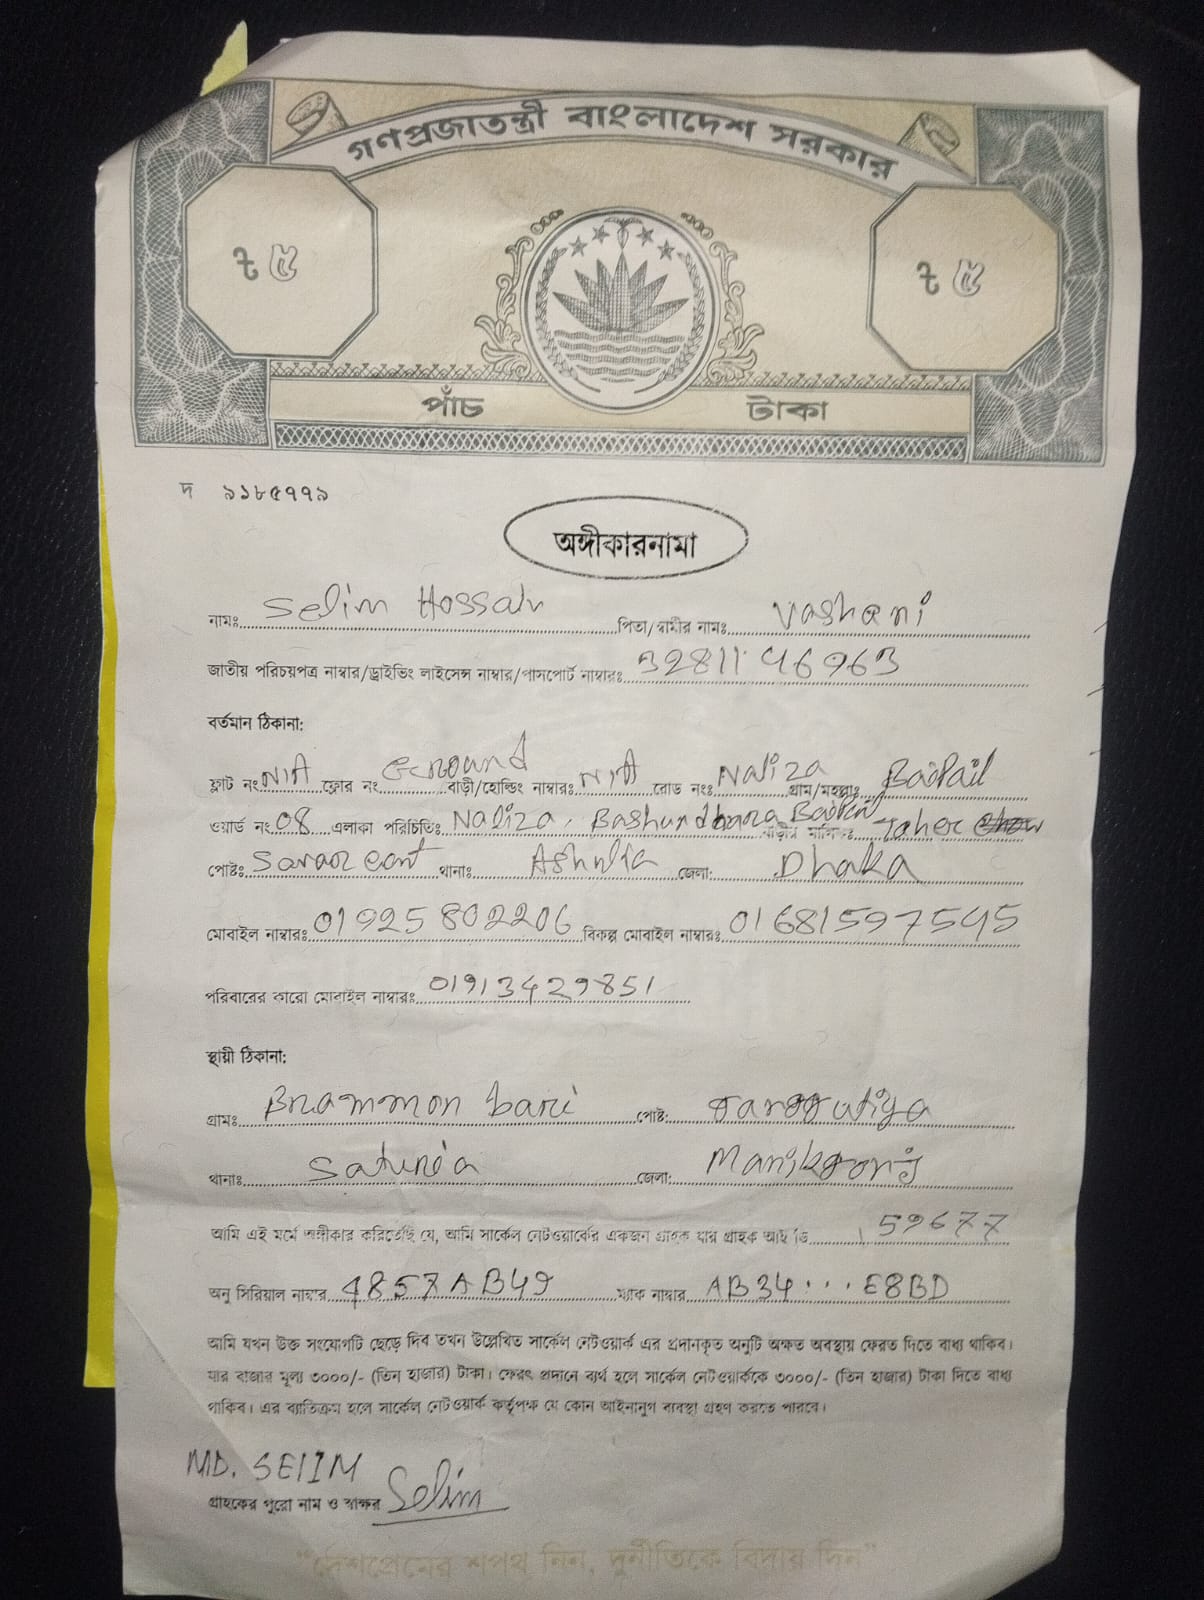 গণপ্রজাতন্ত্রী বাংলাদেশ সরকার
৳ ৫ ৳ ৫
পাঁচ টাকা
দ ৯১৮৫৭৭৯
অঙ্গীকারনামা
নামঃ Selim Hossain পিতা/স্বামীর নামঃ Vashani
জাতীয় পরিচয়পত্র নাম্বার/ড্রাইভিং লাইসেন্স নাম্বার/পাসপোর্ট নাম্বারঃ 3281196963
বর্তমান ঠিকানা:
ফ্লাট নং N/A ফ্লোর নং Ground বাড়ী/হোল্ডিং নাম্বারঃ N/A রোড নংঃ Naliza গ্রাম/মহল্লাঃ Baipail
ওয়ার্ড নং 08 এলাকা পরিচিতিঃ Naliza, Bashundhara বাড়ীর মালিকঃ Taher
পোষ্টঃ Savar cant থানাঃ Ashulia জেলা: Dhaka
মোবাইল নাম্বারঃ 01925802206 বিকল্প মোবাইল নাম্বারঃ 01681597545
পরিবারের কারো মোবাইল নাম্বারঃ 01913429851
স্থায়ী ঠিকানা:
গ্রামঃ Brammon bari পোষ্ট:
থানাঃ Saturia জেলা: Manikgonj
আমি এই মর্মে অঙ্গীকার করিতেছি যে, আমি সার্কেল নেটওয়ার্কের একজন গ্রাহক যার গ্রাহক আই ডি 59677
অনু সিরিয়াল নাম্বার 4857AB49 ম্যাক নাম্বার AB34...E8BD
আমি যখন উক্ত সংযোগটি ছেড়ে দিব তখন উল্লেখিত সার্কেল নেটওয়ার্ক এর প্রদানকৃত অনুটি অক্ষত অবস্থায় ফেরত দিতে বাধ্য থাকিব।
যার বাজার মূল্য ৩০০০/- (তিন হাজার) টাকা। ফেরৎ প্রদানে ব্যর্থ হলে সার্কেল নেটওয়ার্ককে ৩০০০/- (তিন হাজার) টাকা দিতে বাধ্য
থাকিব। এর ব্যতিক্রম হলে সার্কেল নেটওয়ার্ক কর্তৃপক্ষ যে কোন আইনানুগ ব্যবস্থা গ্রহণ করতে পারবে।
MD. SElIM
গ্রাহকের পুরো নাম ও স্বাক্ষর Selim
"দেশপ্রেমের শপথ নিন, দুর্নীতিকে বিদায় দিন"